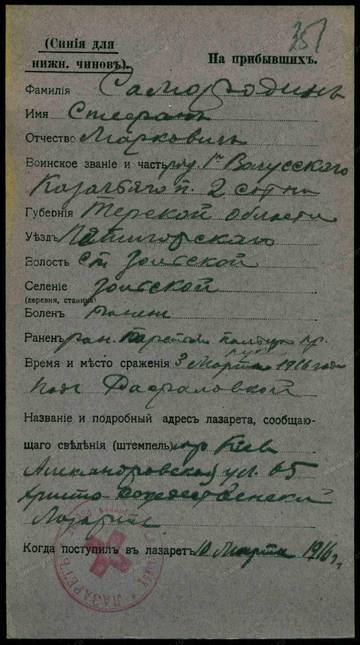 351
(Синія для
нижн. чиновъ).
На прибывшихъ.
Фамилія Самородинъ
Имя Стефанъ
Отчество Марковичъ
Воинское званіе и часть ряд. 1го Волгскаго
Казачьяго п. 2 сотни
Губернія Терской области
Уѣздъ Пятигорскаго
Волость Ст. Зольской
Селеніе Зольской
(деревня, станица)
Боленъ ранен
Раненъ ран.
Время и мѣсто сраженія 3 марта 1916 года
под
Названіе и подробный адресъ лазарета, сообщаю-
щаго свѣдѣнія (штемпель) гор Кіев
Александровская ул. 65
Христо Рождественскій
Лазаретъ
Когда поступилъ въ лазаретъ 10 Марта 1916 г.
ЛАЗАРЕТЪ